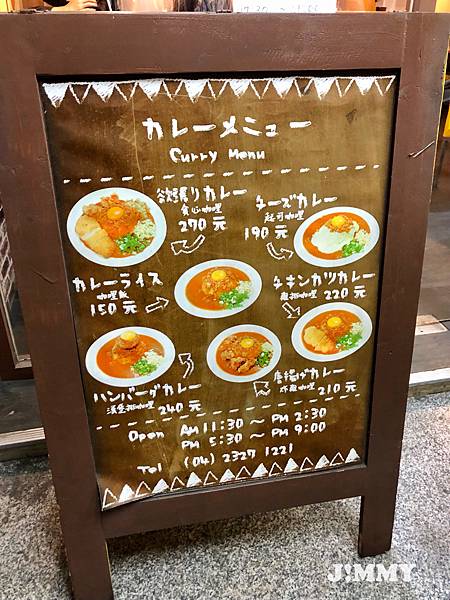 カレーメニュー
Curry Menu
欲張りカレー
貪心咖哩
270 元
チーズカレー
起司咖哩
190 元
カレーライス
咖哩飯
150 元
チキンカツカレー
雞排咖哩 220 元
ハンバーグカレー
漢堡排咖哩 240 元
唐揚げカレー
炸雞咖哩 210 元
Open AM 11:30 ～ PM 2:30
PM 5:30 ～ PM 9:00
Tel (04) 2327 1221
J!MMY